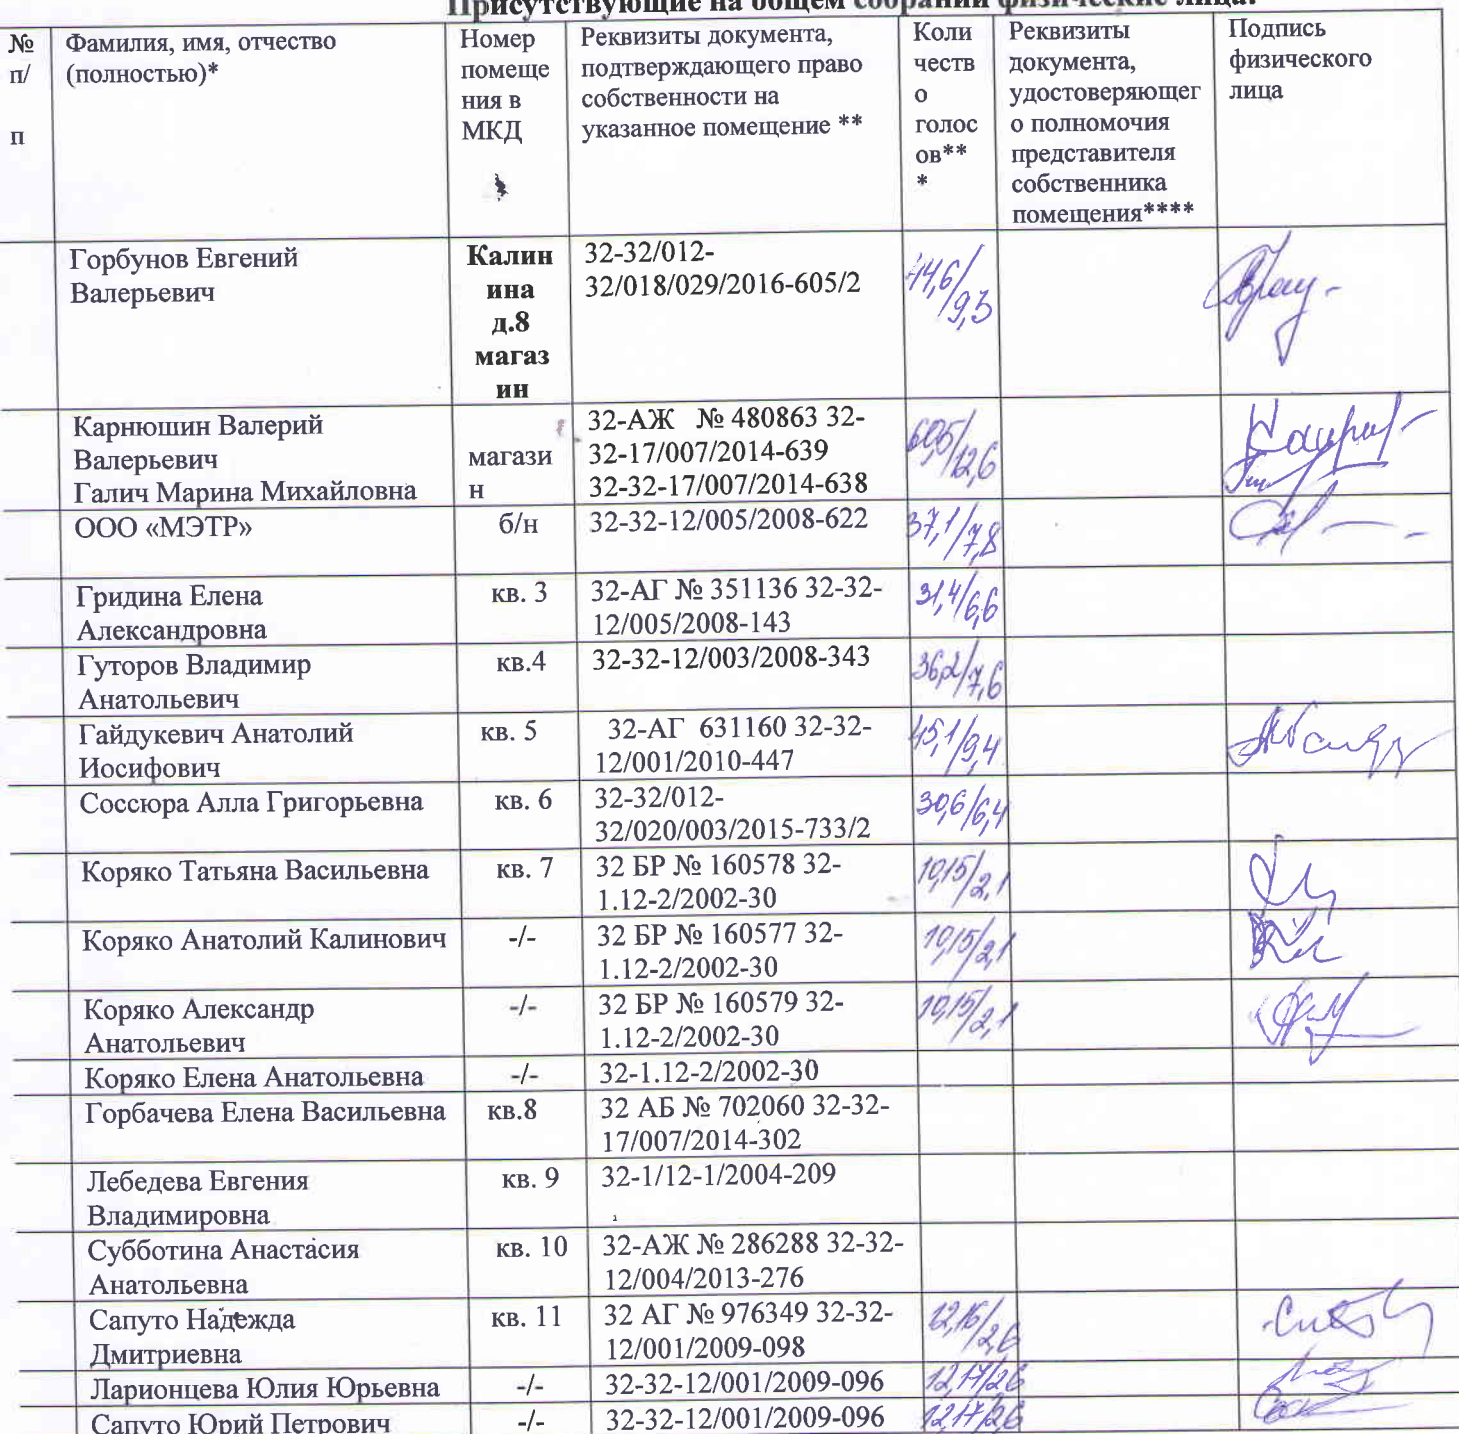 Присутствующие на общем собрании физические лица:
№ п/ п
Фамилия, имя, отчество
(полностью)*
Номер
помеще
ния в
МКД
Реквизиты документа,
подтверждающего право
собственности на
указанное помещение **
Коли
честв
о
голос
ов**
*
Реквизиты
документа,
удостоверяющег
о полномочия
представителя
собственника
помещения****
Подпись
физического
лица
Горбунов Евгений
Валерьевич
Калин
ина
д.8
магаз
ин
32-32/012-
32/018/029/2016-605/2
44,6/9,3
Карнюшин Валерий
Валерьевич
Галич Марина Михайловна
магази
н
32-АЖ № 480863 32-
32-17/007/2014-639
32-32-17/007/2014-638
60,5/12,6
ООО «МЭТР»
б/н
32-32-12/005/2008-622
37,1/7,8
Гридина Елена
Александровна
кв. 3
32-АГ № 351136 32-32-
12/005/2008-143
31,4/6,6
Гуторов Владимир
Анатольевич
кв.4
32-32-12/003/2008-343
36,2/7,6
Гайдукевич Анатолий
Иосифович
кв. 5
32-АГ 631160 32-32-
12/001/2010-447
45,1/9,4
Соссюра Алла Григорьевна
кв. 6
32-32/012-
32/020/003/2015-733/2
30,6/6,4
Коряко Татьяна Васильевна
кв. 7
32 БР № 160578 32-
1.12-2/2002-30
10,15/2,1
Коряко Анатолий Калинович
-/-
32 БР № 160577 32-
1.12-2/2002-30
10,15/2,1
Коряко Александр
Анатольевич
-/-
32 БР № 160579 32-
1.12-2/2002-30
10,15/2,1
Коряко Елена Анатольевна
-/-
32-1.12-2/2002-30
Горбачева Елена Васильевна
кв.8
32 АБ № 702060 32-32-
17/007/2014-302
Лебедева Евгения
Владимировна
кв. 9
32-1/12-1/2004-209
Субботина Анастасия
Анатольевна
кв. 10
32-АЖ № 286288 32-32-
12/004/2013-276
Сапуто Надежда
Дмитриевна
кв. 11
32 АГ № 976349 32-32-
12/001/2009-098
12,16/2,6
Ларионцева Юлия Юрьевна
-/-
32-32-12/001/2009-096
12,17/2,6
Сапуто Юрий Петрович
-/-
32-32-12/001/2009-096
12,17/2,6